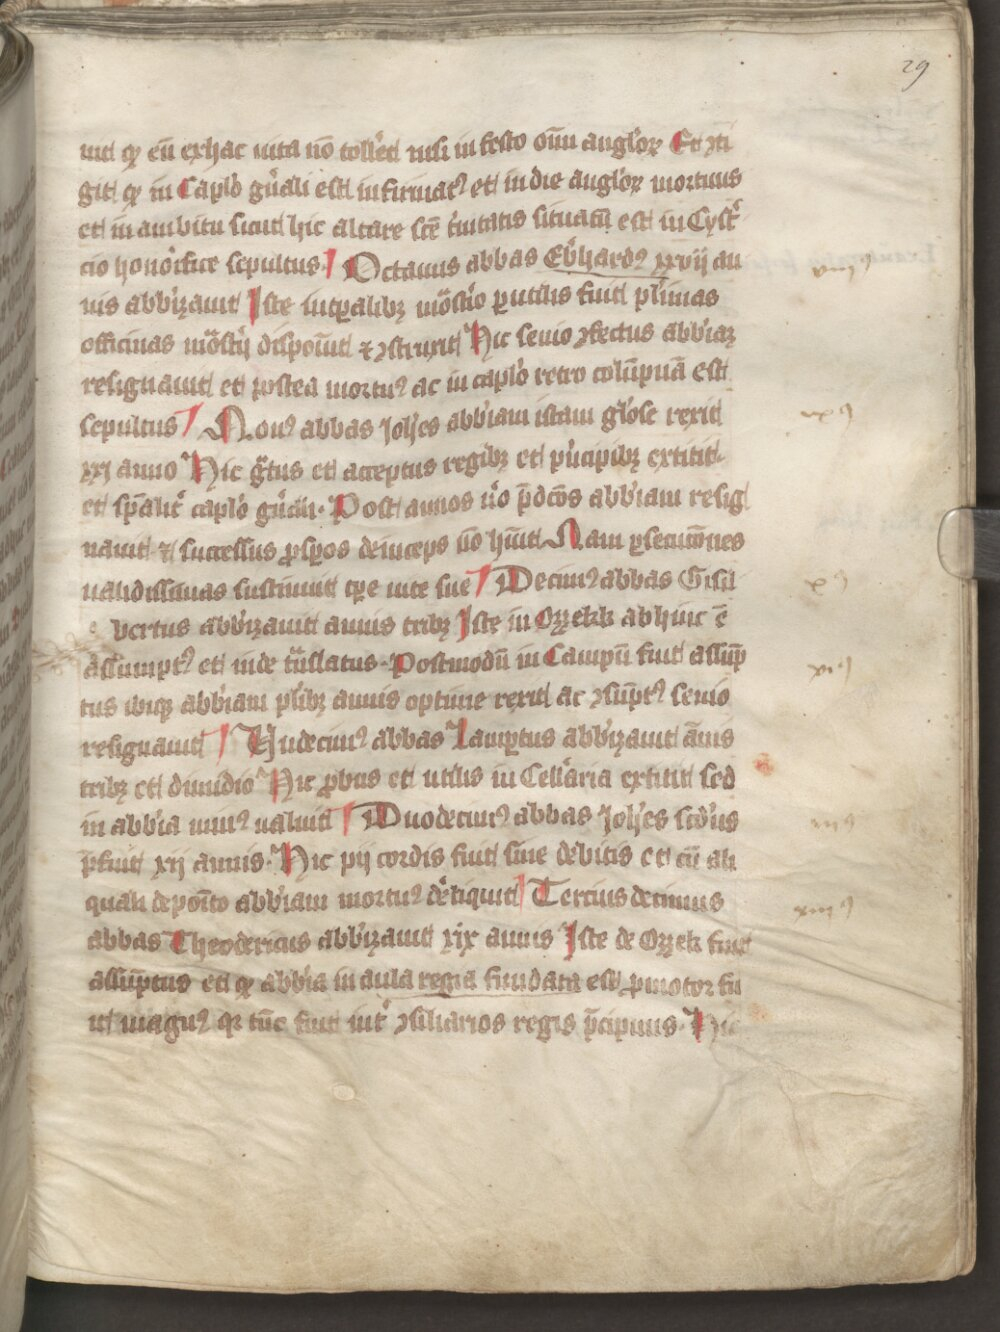 29
uit qz eū exhac uita nō tolleꝫ nisi in festo om̄ anglorꝝ Et ꝯti
git qz in Caplo gn̄ali est infirmatꝰ et in die anglorꝝ mortuus
et in ambitu sicut hic altare sc̄e trinitatis situatū est in Cyster
cio honorifice sepultus. Octauus abbas Ebhardꝰ xxvij an
nis abbizauit Iste in tꝑalibꝫ mōstio ꝑutilis fuit plimas
officinas mōstij disposuit ⁊ ꝯstruxit Hic senio ꝯfectus abbiaꝫ
resignauit et postea mortuꝰ ac in caplo retro columpnā est
sepultus Nonꝰ abbas Johes abbiam istam glose rexit
xxj anno Hic gratus et acceptus regibꝫ et principibꝫ extitit
et spālit caplo gn̄ali. Post annos uo p̄dc̄os abbiam resig
nauit ⁊ successus ꝓsperos deinceps nō hūit Nam ꝑsecucōnes
ualidissimas sustinuit tpe uite sue Decimꝰ abbas Gisil
bertus abbizauit annis tribꝫ Iste in Ozzekk abhinc ē
assumptꝰ et inde trāslatus. Postmodū in Campū fuit assūp
tus ibiqꝫ abbiam plibꝫ annis optime rexit ac ꝯsūptꝰ senio
resignauit Undecimꝰ abbas Lamptus abbizauit ānis
tribꝫ et dimidio Hic ꝓbus et utilis in Cellaria extitit sed
in abbia minꝰ ualuit Duodecimꝰ abbas Johes scdus
p̄fuit xij annis. Hic pij cordis fuit sine debitis et cū ali
quali deposito abbiam mortuꝰ deliquit Tercius decimus
abbas Theodericus abbizauit xix annis Iste de Ozzek fuit
assūptus et qz abbia in aula regia fundata est ꝓmotor fu
it magnꝰ qz tūc fuit int ꝯsiliarios regis p̄cipuus. Hic
viijꝰ
ixꝰ
xꝰ
xjꝰ
xijꝰ
xiijꝰ